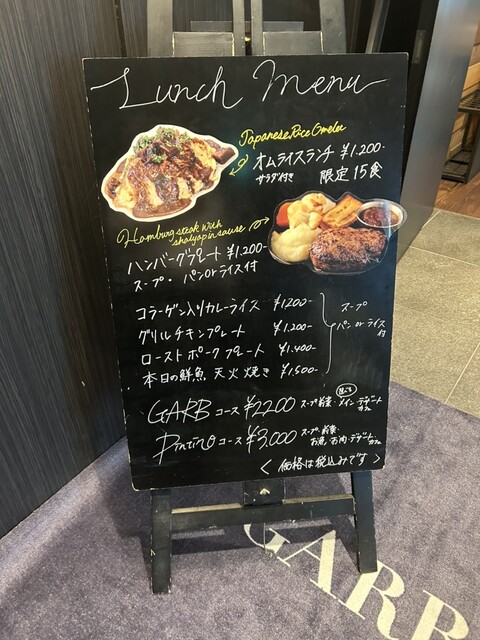 Lunch Menu
Japanese Rice Omelet
オムライスランチ ¥1,200-
サラダ付き 限定15食
Hamburg steak with
shalyapin sause
ハンバーグプレート ¥1,200-
スープ・パンorライス付
コラーゲン入りカレーライス ¥1,200-
グリルチキンプレート ¥1,200-
ローストポークプレート ¥1,400-
本日の鮮魚 天火焼き ¥1,500-
スープ
パンorライス
付
GARB コース ¥2200 スープ・前菜・メイン・デザート
カフェ
コース ¥3,000 スープ・前菜・
お魚・お肉・デザート・
カフェ
< 価格は税込みです >
GARB